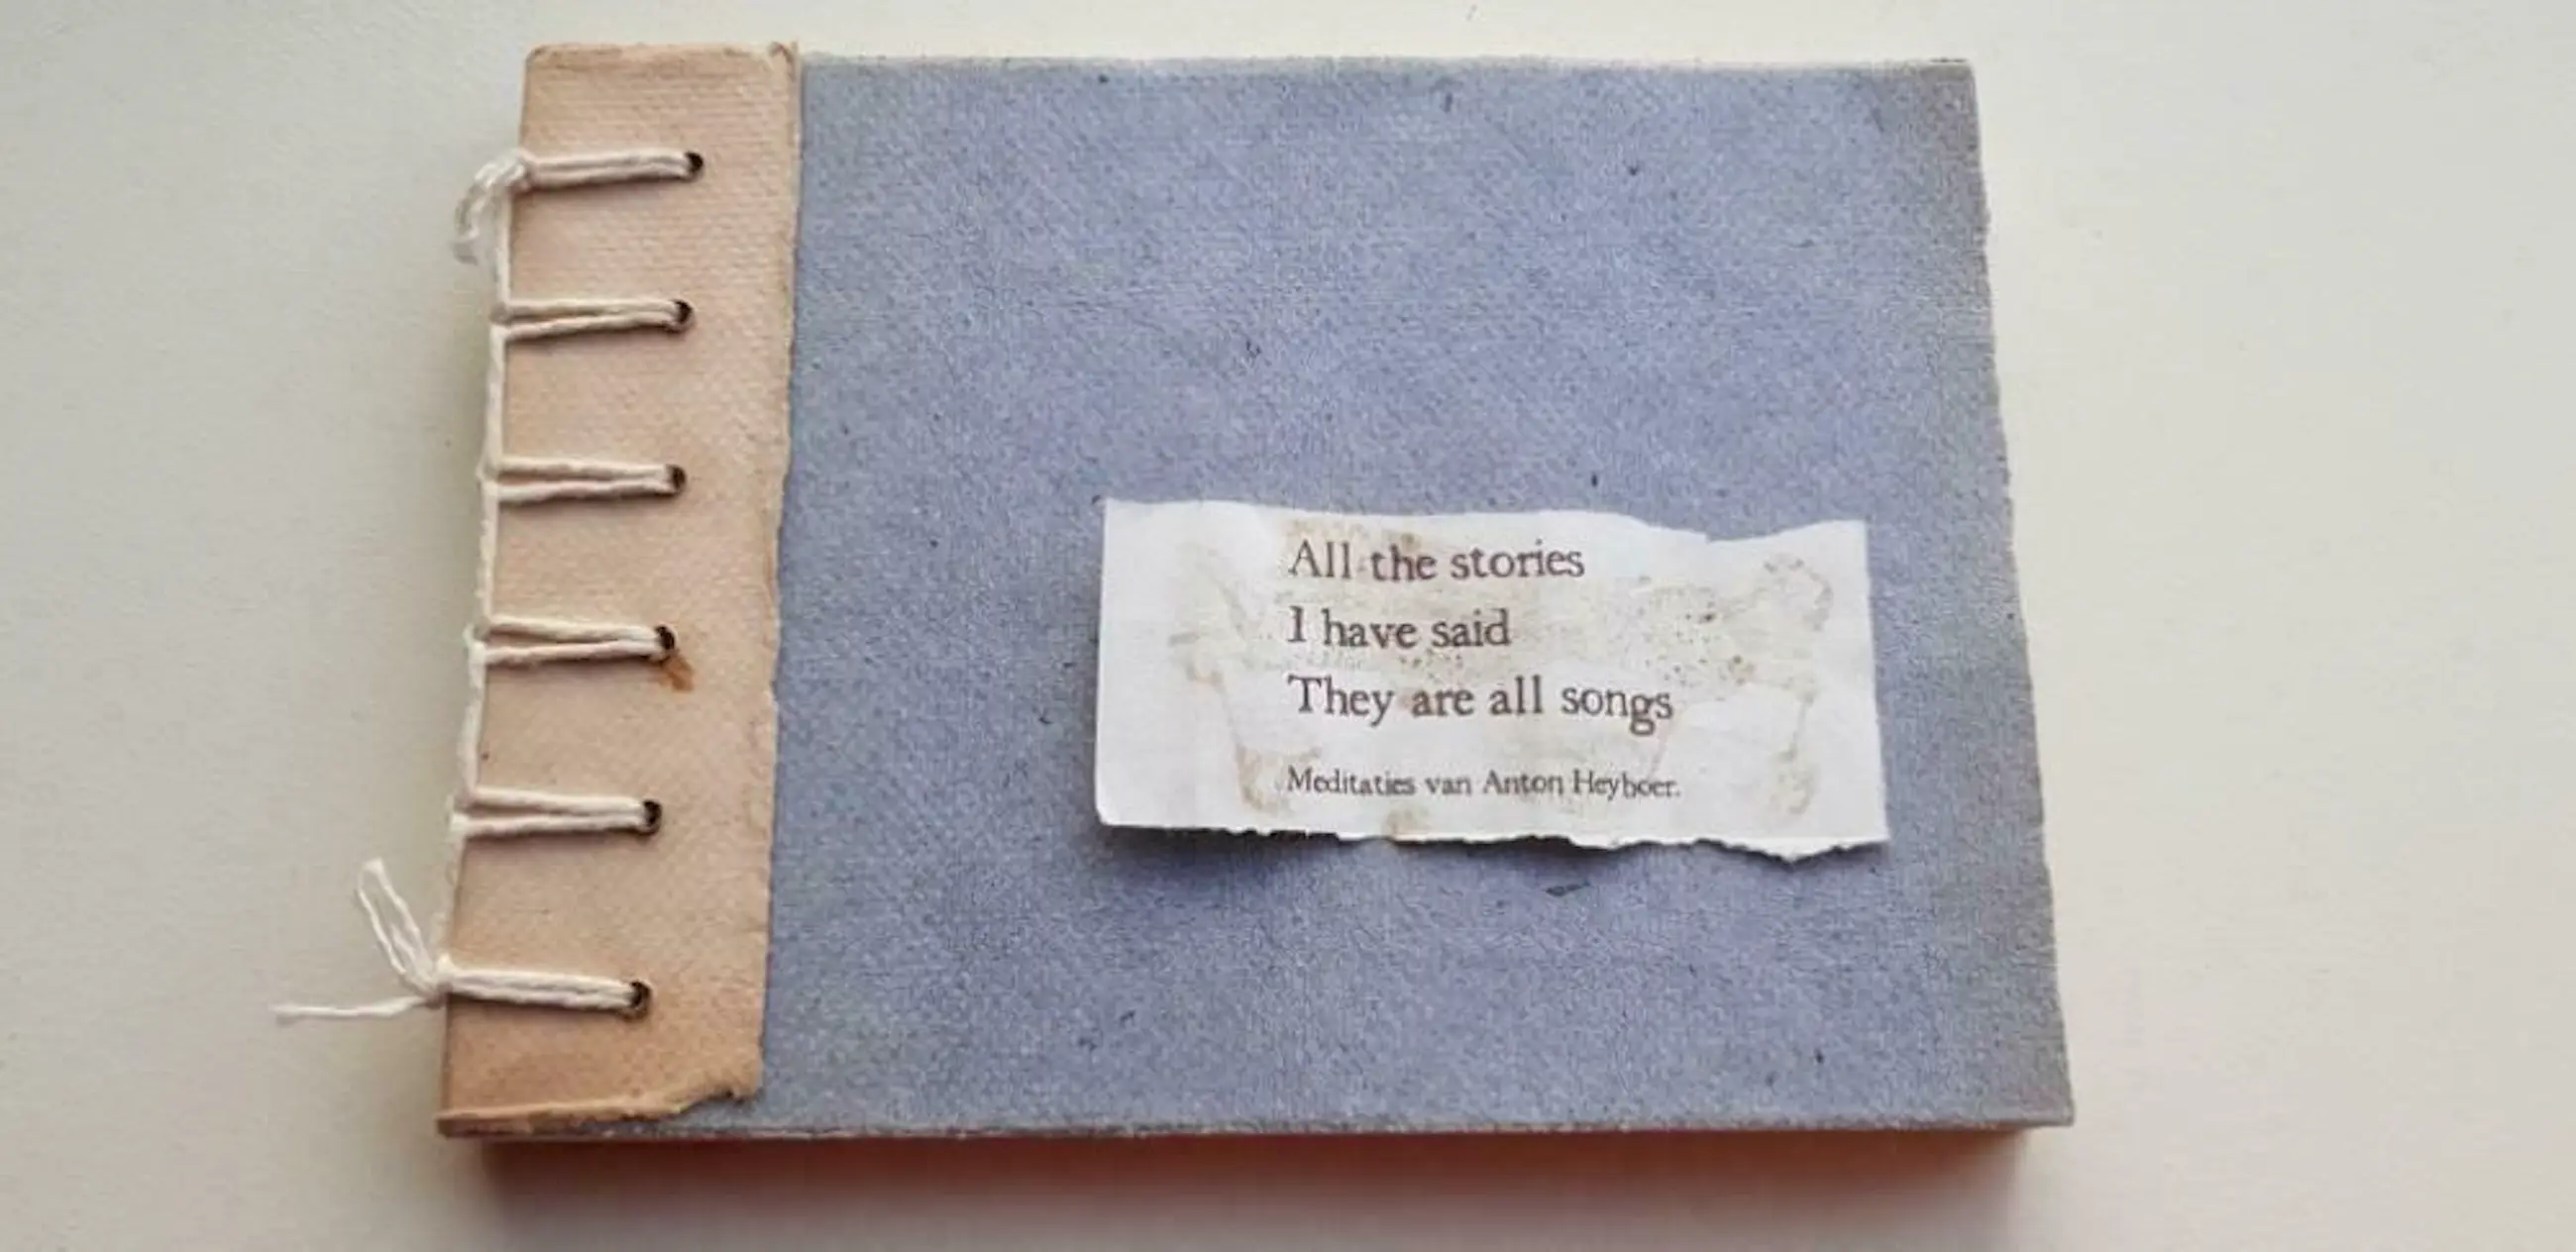 All the stories
I have said
They are all songs
Meditaties van Anton Heyboer.